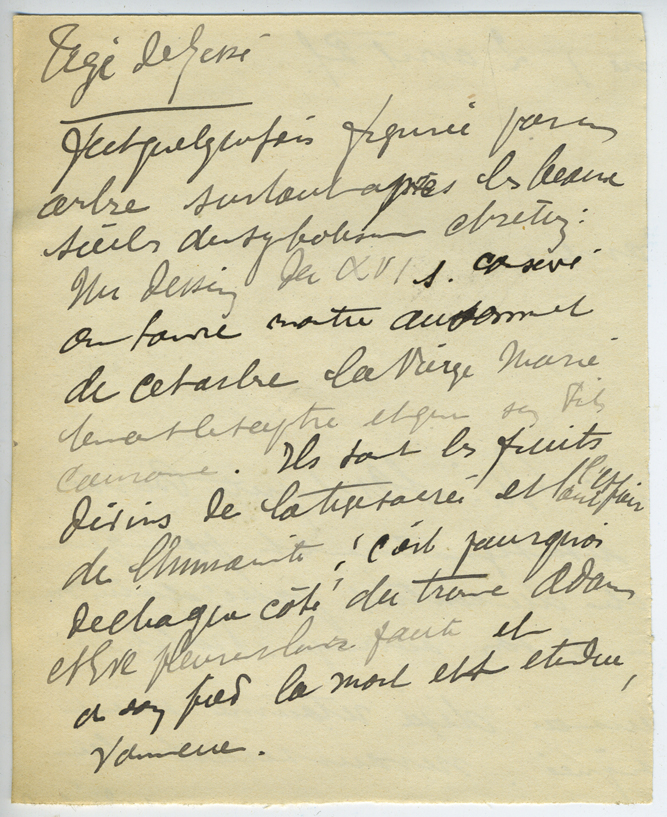 Tige de Jessé
fut quelquefois figurée par un
arbre surtout après les beaux
siècles du symbolisme chrétien :
Un dessin du XVI s. conservé
au Louvre montre au sommet
de cet arbre la Vierge Marie
tenant le sceptre et que son Fils
couronne. Ils sont les fruits
divins de la tige sacrée et l'espoir
de l'humanité, c'est pourquoi
de chaque côté du trone Adam
et Eve pleurent leurs faute et
a son pied la mort est etendue,
vaincue.